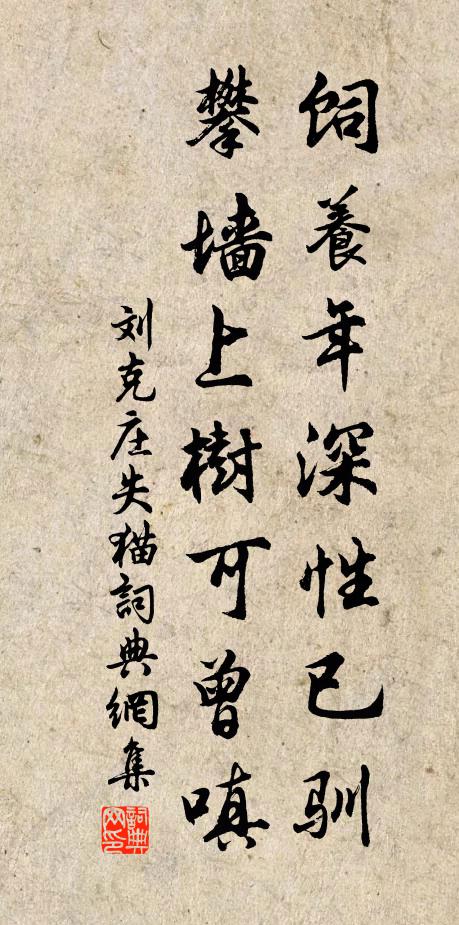 饲養年深性已驯
攀墙上樹可曾嗔
刘克庄失猫詞典網集
詞典网印